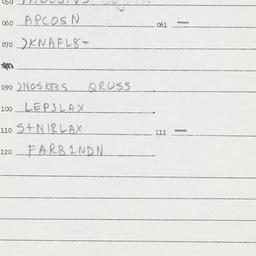 060 APCOSN 061 —
070 JKNAFL8-
090 JNOSKB3S QRUSS
100 LEP3LAX
110 S+NIRLAX 111 —
120 FARB1NDN